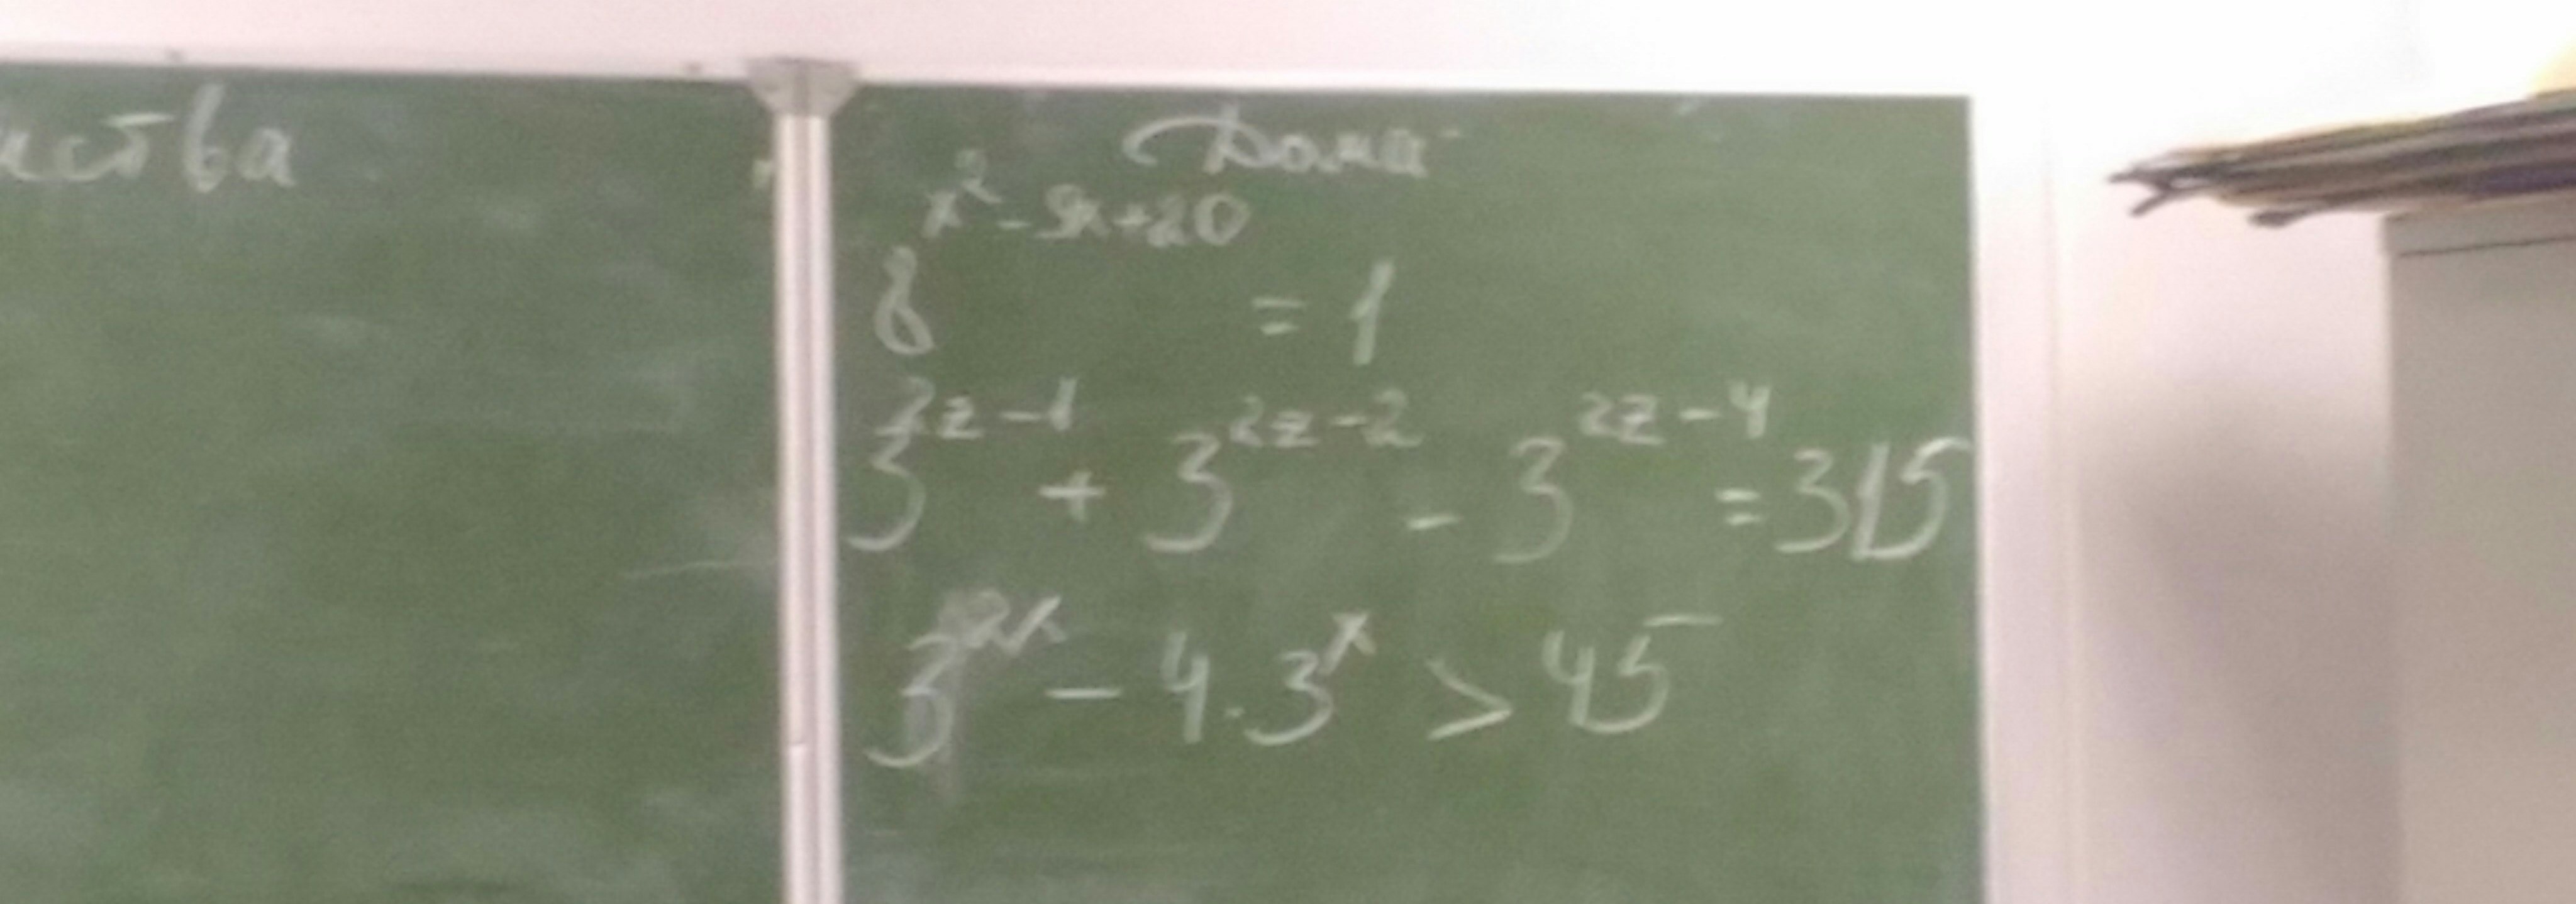 ства
Дома
x² - 9x + 20
8 = 1
3^{2z-1} + 3^{2z-2} - 3^{2z-4} = 315
3^{2x} - 4 · 3^x > 45